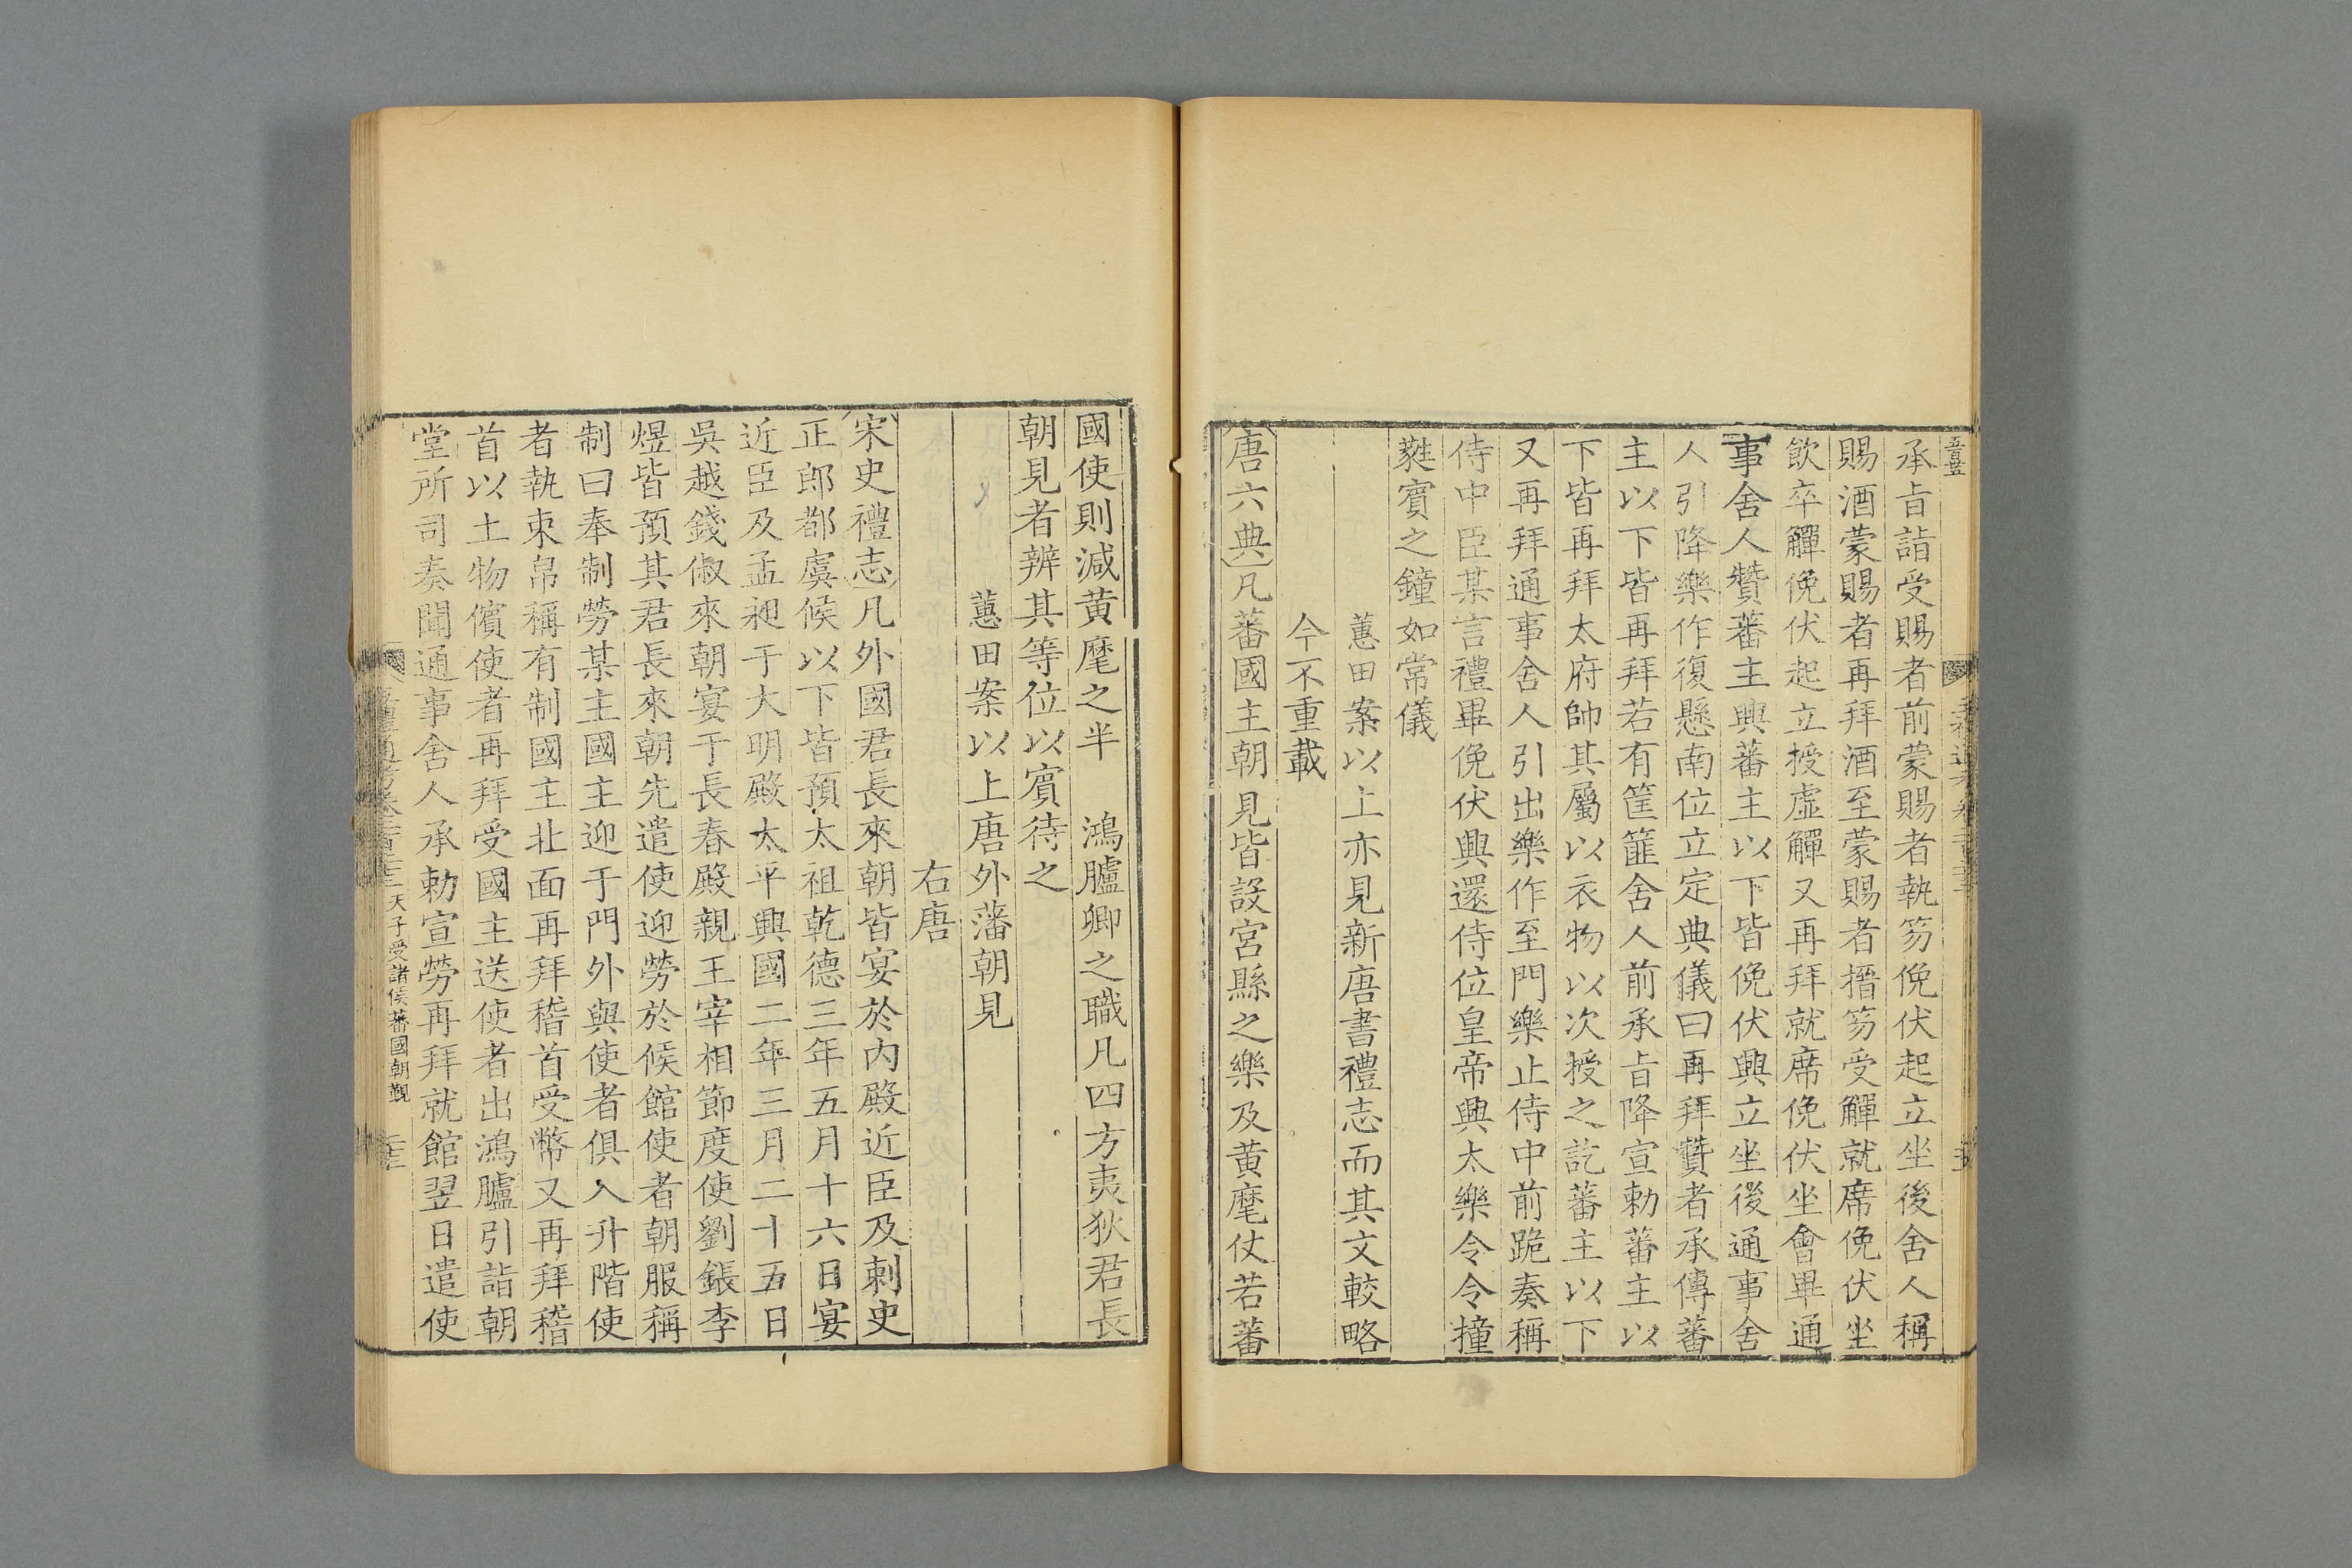 承㫖詣受賜者前蒙賜者執笏俛伏起立坐後舍人稱
賜酒蒙賜者再拜酒至蒙賜者搢笏受觶就席俛伏坐
飲卒觶俛伏起立授虛觶又再拜就席俛伏坐會畢通
事舍人贊蕃主興蕃主以下皆俛伏興立坐後通事舍
人引降樂作復懸南位立定典儀曰再拜贊者承傳蕃
主以下皆再拜若有筐篚舍人前承㫖降宣勅蕃主以
下皆再拜太府帥其屬以衣物以次授之訖蕃主以下
又再拜通事舍人引出樂作至門樂止侍中前跪奏稱
侍中臣某言禮畢俛伏興還侍位皇帝興太樂令令撞
蕤賓之鐘如常儀
蕙田案以上亦見新唐書禮志而其文較略
今不重載
唐六典凡蕃國主朝見皆設宮縣之樂及黃麾仗若蕃
國使則減黃麾之半　鴻臚卿之職凡四方夷狄君長
朝見者辨其等位以賓待之
蕙田案以上唐外藩朝見
右唐
宋史禮志凡外國君長來朝皆宴於內殿近臣及刺史
正郎都虞候以下皆預太祖乾德三年五月十六日宴
近臣及孟昶于大明殿太平興國二年三月二十五日
吳越錢俶來朝宴于長春殿親王宰相節度使劉鋹李
煜皆預其君長來朝先遣使迎勞於候館使者朝服稱
制曰奉制勞某主國主迎于門外與使者俱入升階使
者執束帛稱有制國主北面再拜稽首受幣又再拜稽
首以土物儐使者再拜受國主送使者出鴻臚引詣朝
堂所司奏聞通事舍人承勅宣勞再拜就館翌日遣使
天子受諸侯蕃國朝覲